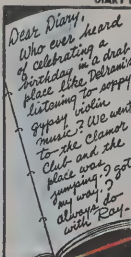 Dear Diary,
Who ever heard
of celebrating a
birthday in a drab
place like Delrani's
listening to soppy
gypsy violin
music? We went
to the Clamor
Club and the
place was
jumping. I got
my way. I
always do
with Ray.